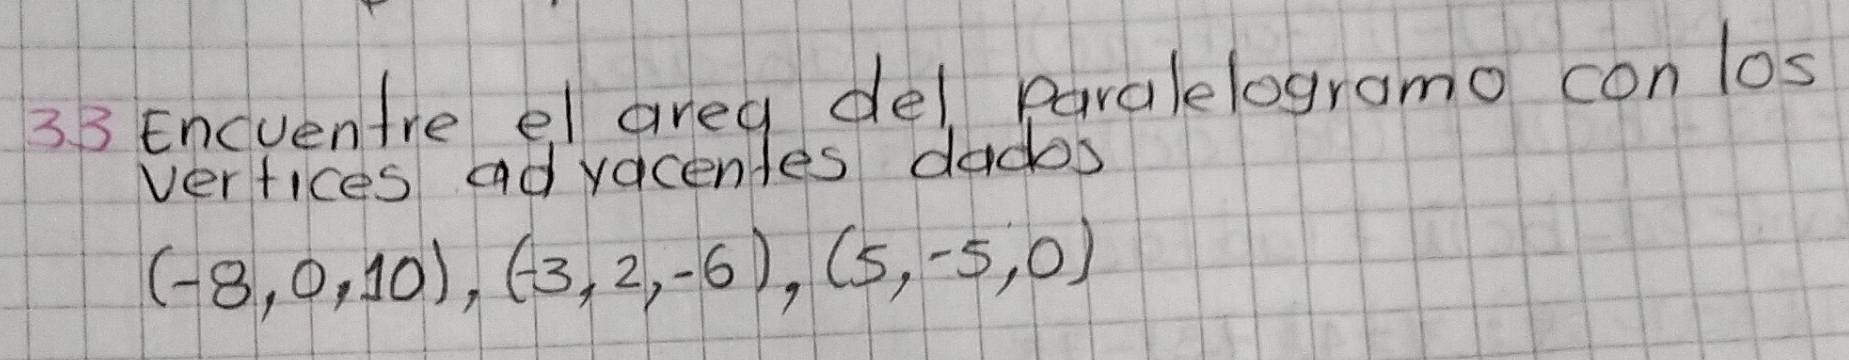 33 Encuentre el area del paralelogramo con los
vertices adyacentes dados
(-8,0,10), (-3,2,-6), (5,-5,0)